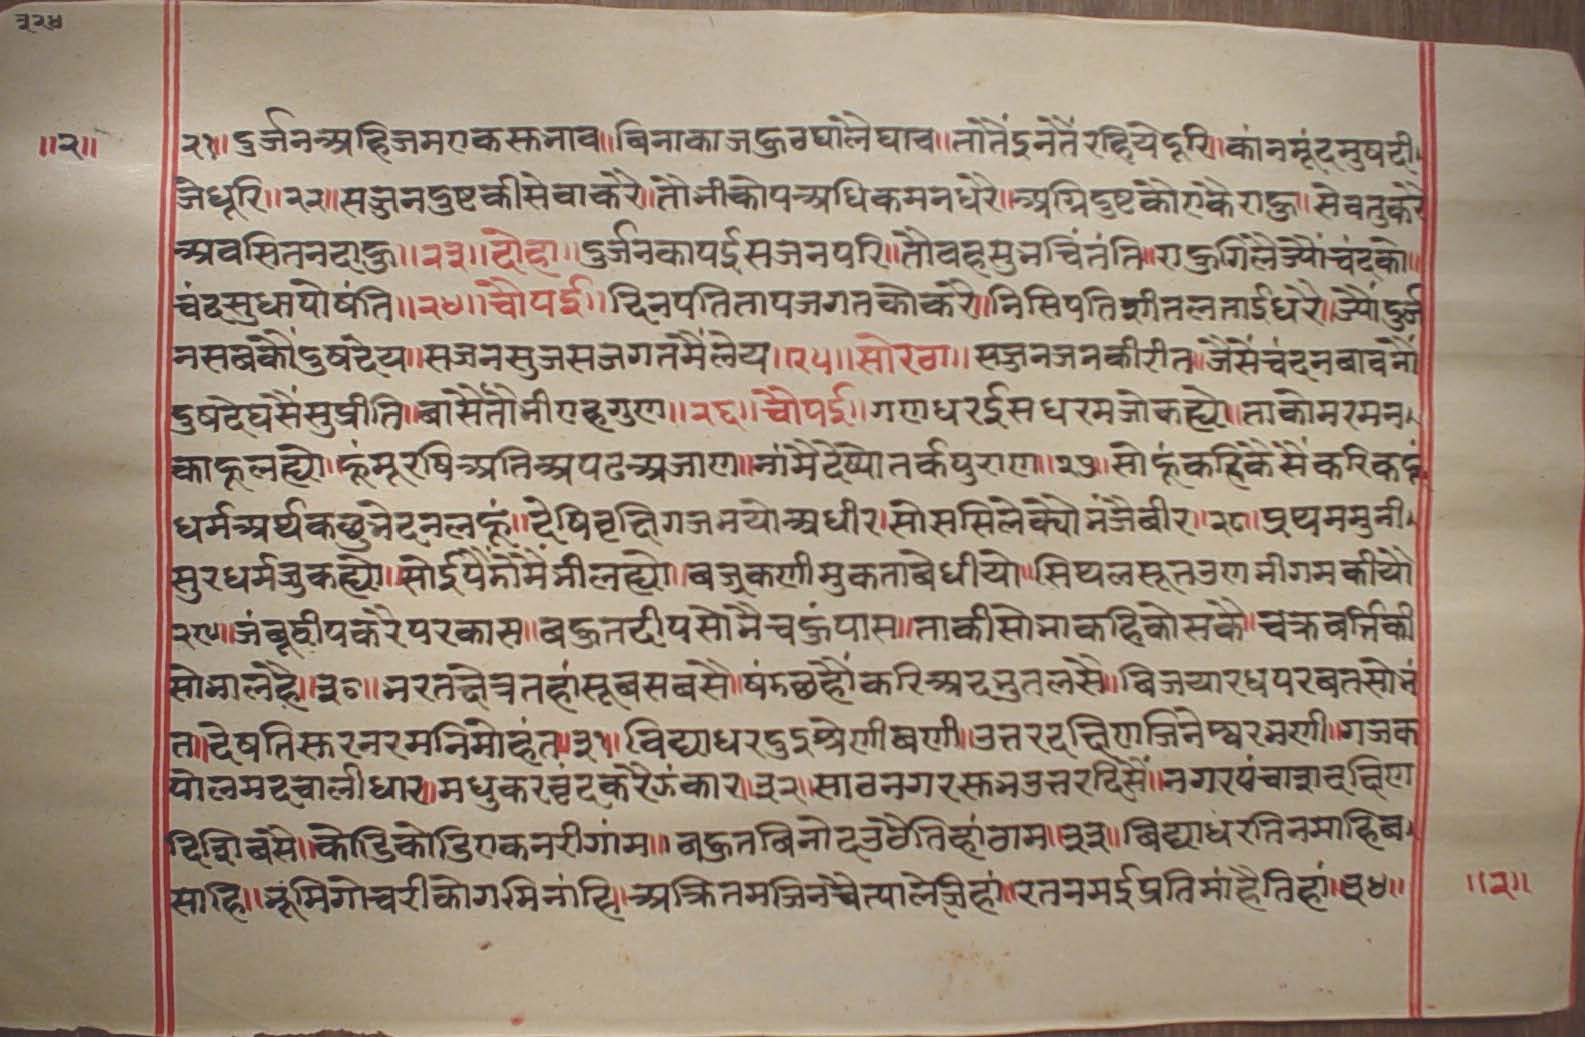 ३२४
॥२॥ २१॥ दुर्जनअहिजमएकसभाव॥बिनाकाजकुवघालेघाव॥तातैंइनतैंरहियेदूरि॥कांनमूंदमुषदी
जेधूरि॥२२॥सज्जनदुष्टकीसेवाकरै॥तौभीकोपअधिकमनधरै॥अग्निदुष्टकोएकैराहु॥सेवतुकरै
अवसितनदाहु॥२३॥दोहा॥दुर्जनकोपईसजनपरि॥तौवहसुभचिंतंति॥राहुगिलैज्यौंचंदको॥
चंदसुधापोषंति॥२४॥चौपई॥दिनपतितापजगतकोकरै॥निसिपतिशीतलताईधरै॥ज्यौंदुर्ज
नसबकौंदुषदेय॥सजनसुजसजगतमैंलेय॥२५॥सोरठा॥सज्जनजनकीरीत॥जैसेंचंदनबावनौं
दुषदेघसैंसुप्रीति॥बासैतौभीएहगुण॥२६॥चौपई॥गणधरईसधरमजोकह्यो॥ताकोमरमन
काहूलह्यो॥हूंमूरषिअतिअपढअजाण॥नांमैंदेष्योतर्कपुराण॥२७॥सोहूंकहिकैसैंकरिकहूं
धर्मअर्थकछुभेदनलहूं॥देषिवृत्तिगजनयोअधीर॥सोससिलेक्योनंजैबीर॥२८॥प्रथममुनी
सुरधर्मजुकह्यो॥सोईपैंतोमैंभीलह्यो॥बज्रकणीमुकताबेधीयो॥सिथलसूतउणभीगमकीयौ
२९॥जंबूद्वीपकरैपरकास॥बहुतदीपसोभैचहुंपास॥ताकीसोभाकहिकोसकै॥चक्रबर्त्तिकी
सोभालहै॥३०॥भरतक्षेत्रतहांसूबसबसै॥षंडछहौंकरिअदभुतलसै॥बिजयारधपरबतसोभं
त॥देषतिसुरनरमनिमोहंत॥३१॥विद्याधरदुइश्रेणीबणी॥उत्तरदक्षिणजिनेश्वरभणी॥गजक
पोलमदचालीधार॥मधुकरवृंदकरैझंकार॥३२॥साठनगरसुभउत्तरदिसैं॥नगरपंचाशदक्षिण
दिशिबसै॥कोडिकोडिएकनरीगांम॥बहुतबिनोदउठैतिहांठाम॥३३॥बिद्याधरतिनमाहिब
साहि॥भूंमिगोचरीकोगमिनांहि॥अक्रितमजिनचैत्यालेजिहां॥रतनमईप्रतिमांहैतिहां॥३४॥ ॥२॥